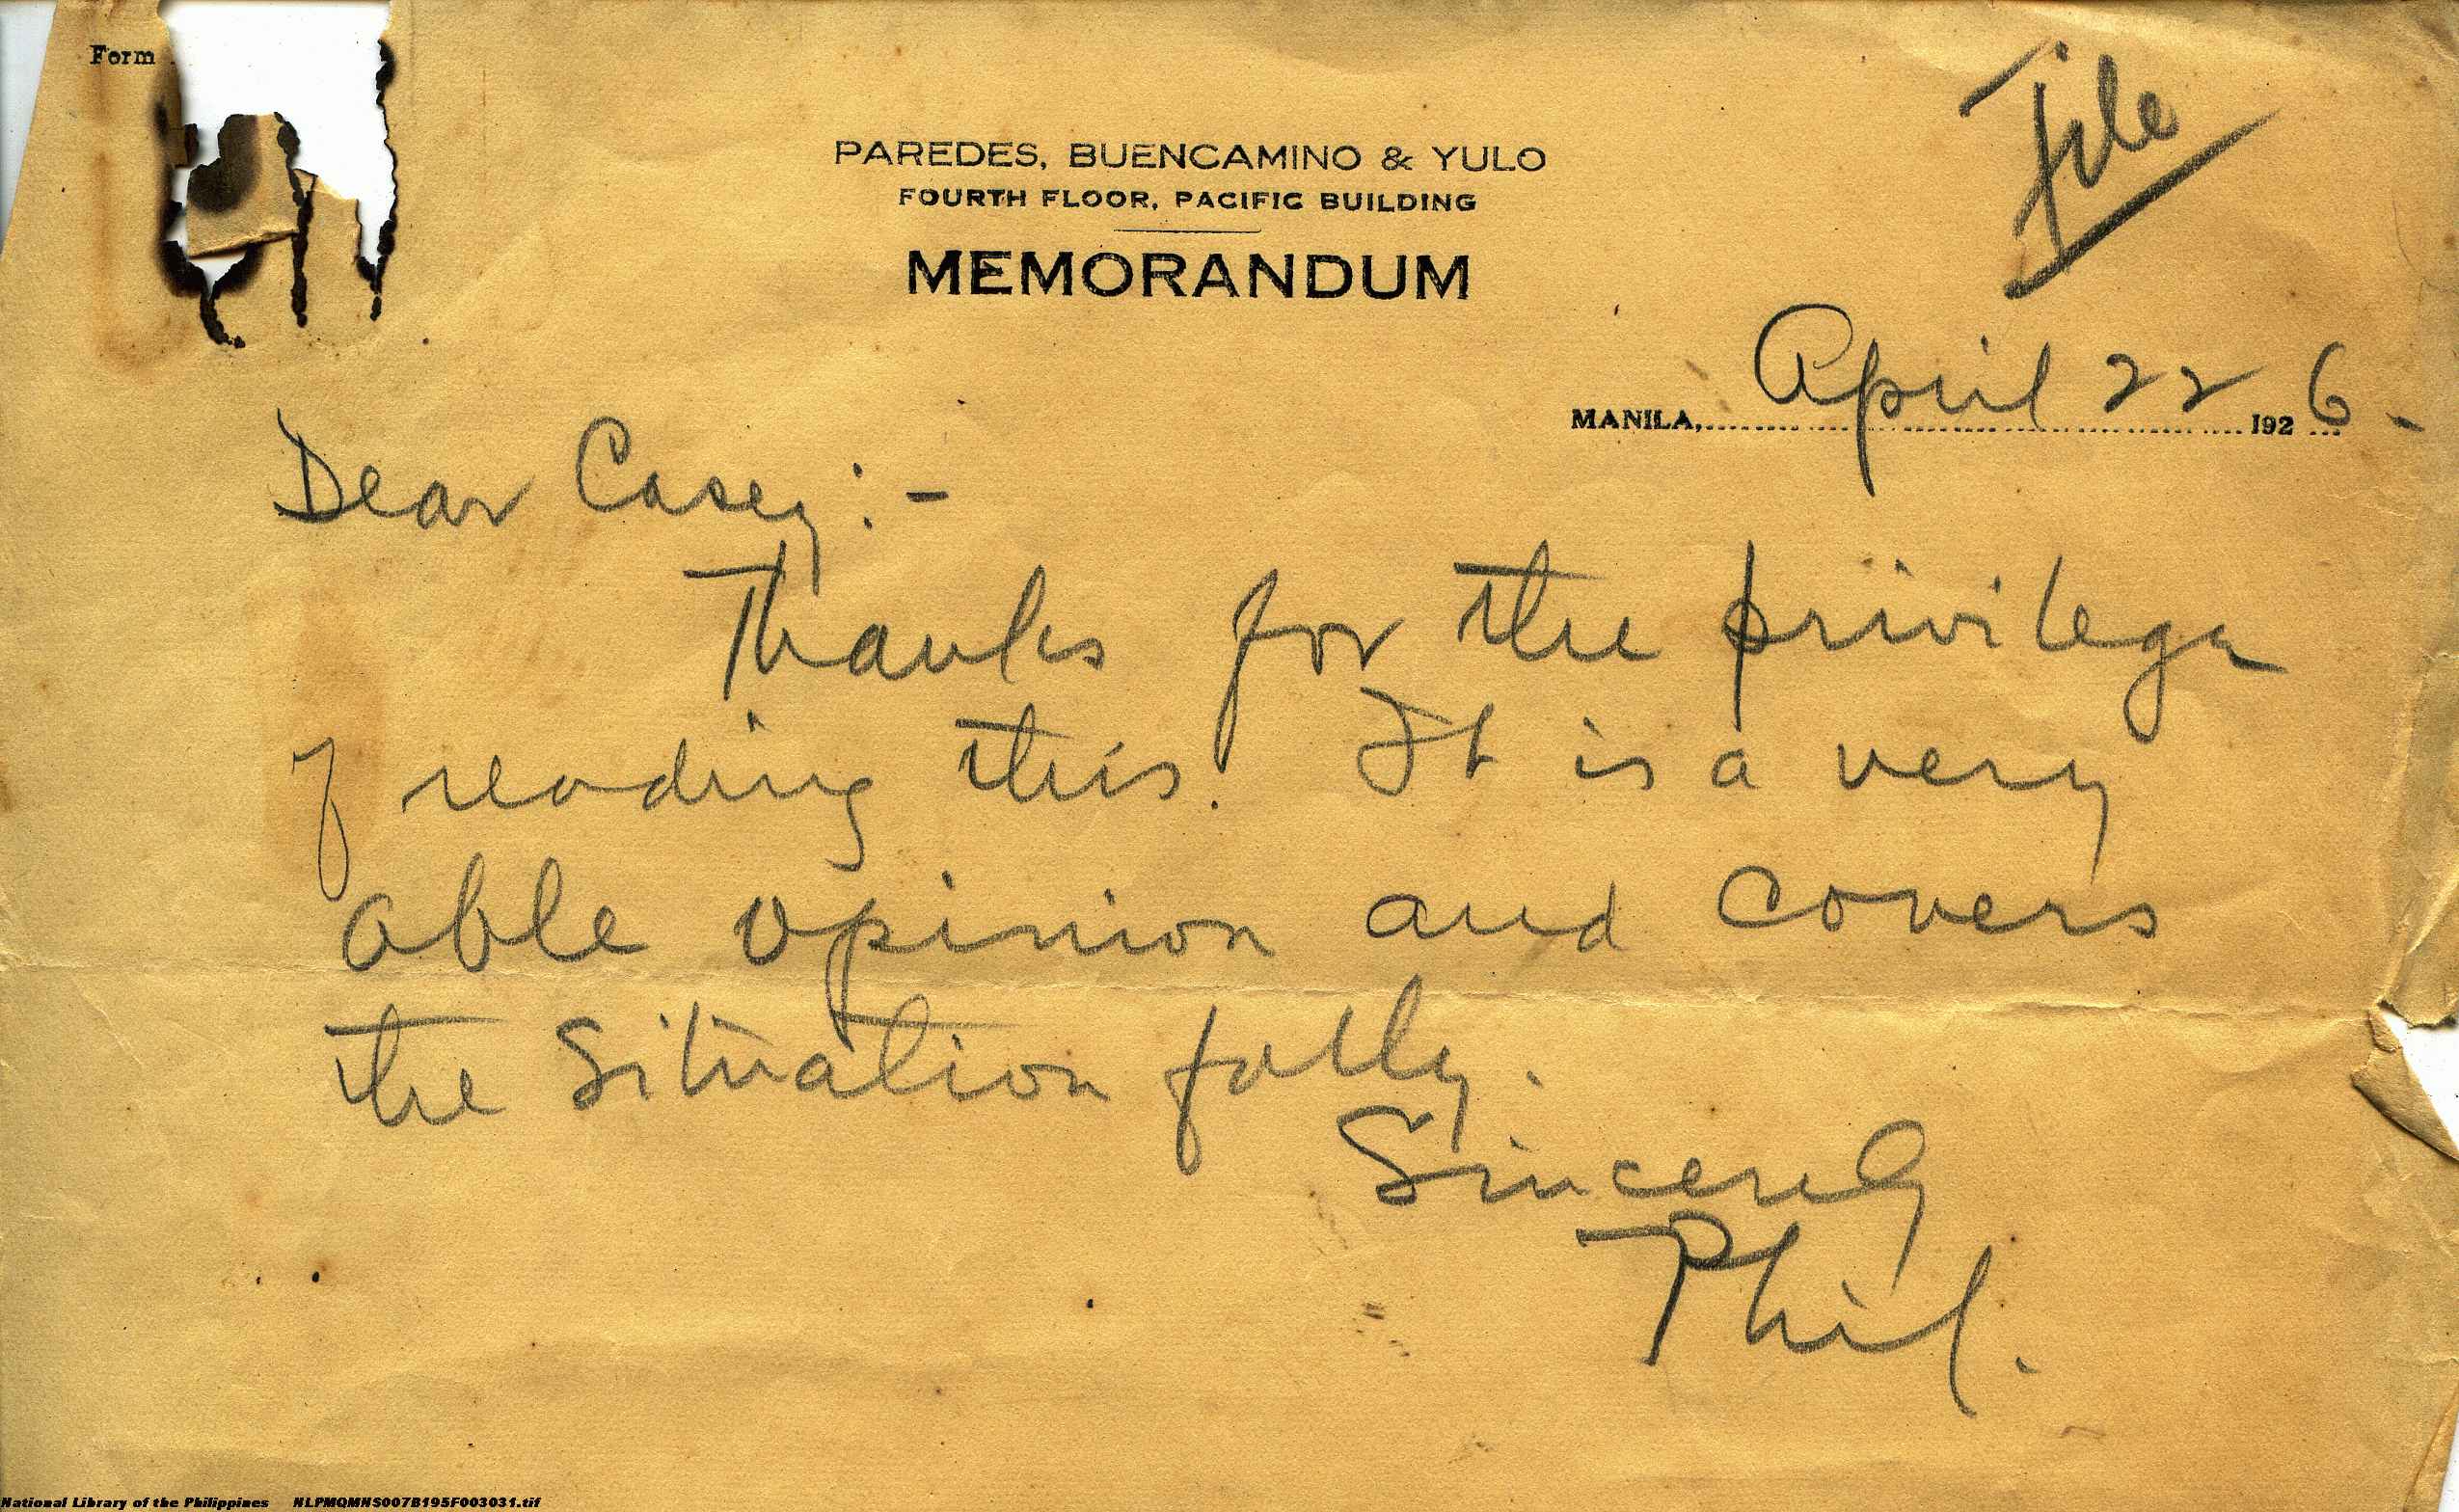 Form
File
PAREDES, BUENCAMINO & YULO
FOURTH FLOOR, PACIFIC BUILDING
MEMORANDUM
MANILA, April 22 1926.
Dear Casey:-
Thanks for the privilege
of reading this. It is a very
able opinion and covers
the situation fully.
Sincerely
Phil.
National Library of the Philippines NLPMQMNS007B195F003031.tif